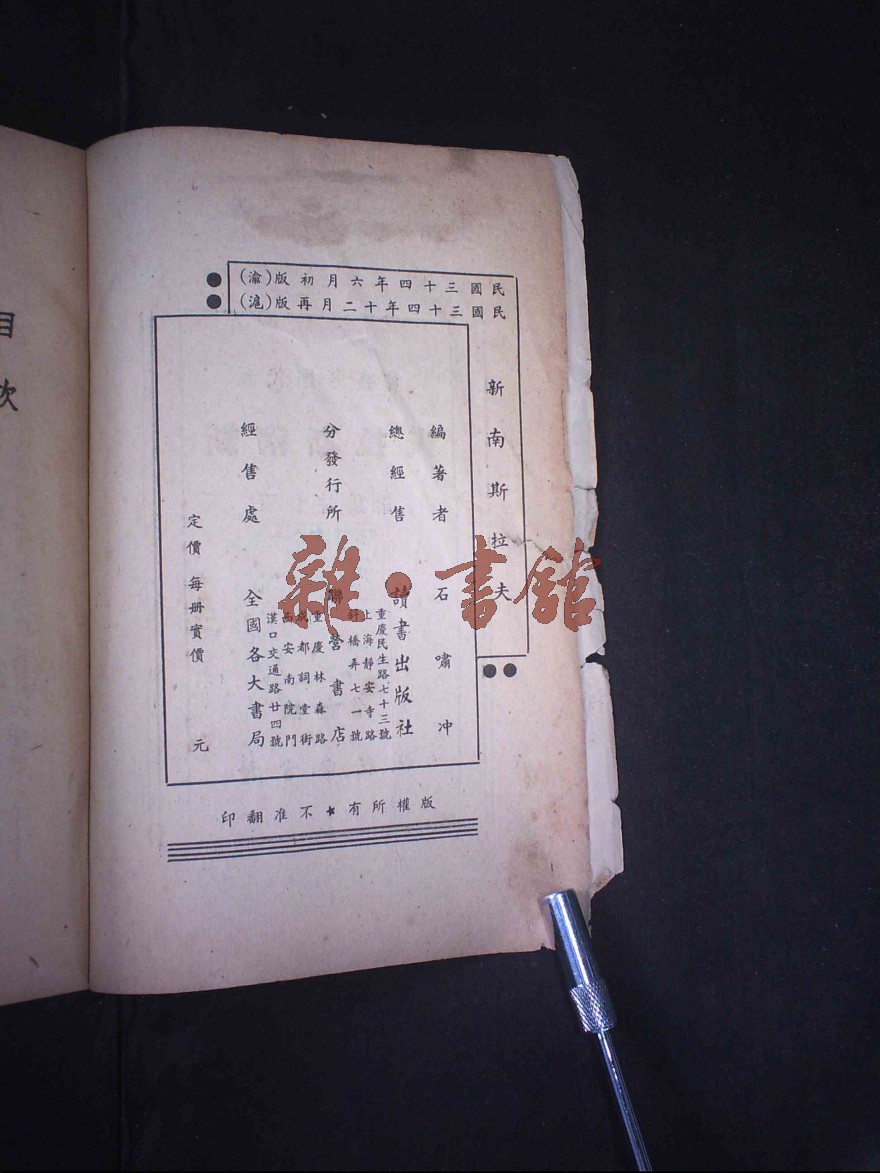 民國三十四年六月初版(渝)
民國三十四年十二月再版(滬)
新南斯拉夫
編著者 石嘯冲
總經售 讀書出版社
重慶民生路七十三號
上海靜安寺路
斜橋弄七一號
分發行所 聯營書店
重慶林森路
成都祠堂街
西安南院門
漢口交通路廿四號
經售處 全國各大書局
定價 每册實價 元
版權所有★不准翻印
目次
雜·書館